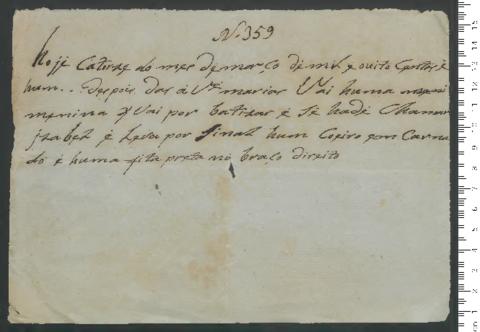 N. 359
Hoje Catorze do mes de março de mil e outo Centos e
hum.. despois das a Ves marias Vai huma
menina q Vai por batizar e Se hade Chamar
izabel e Leva por Sinal hum Coeiro em Carna
do e huma fita preta no braço direito